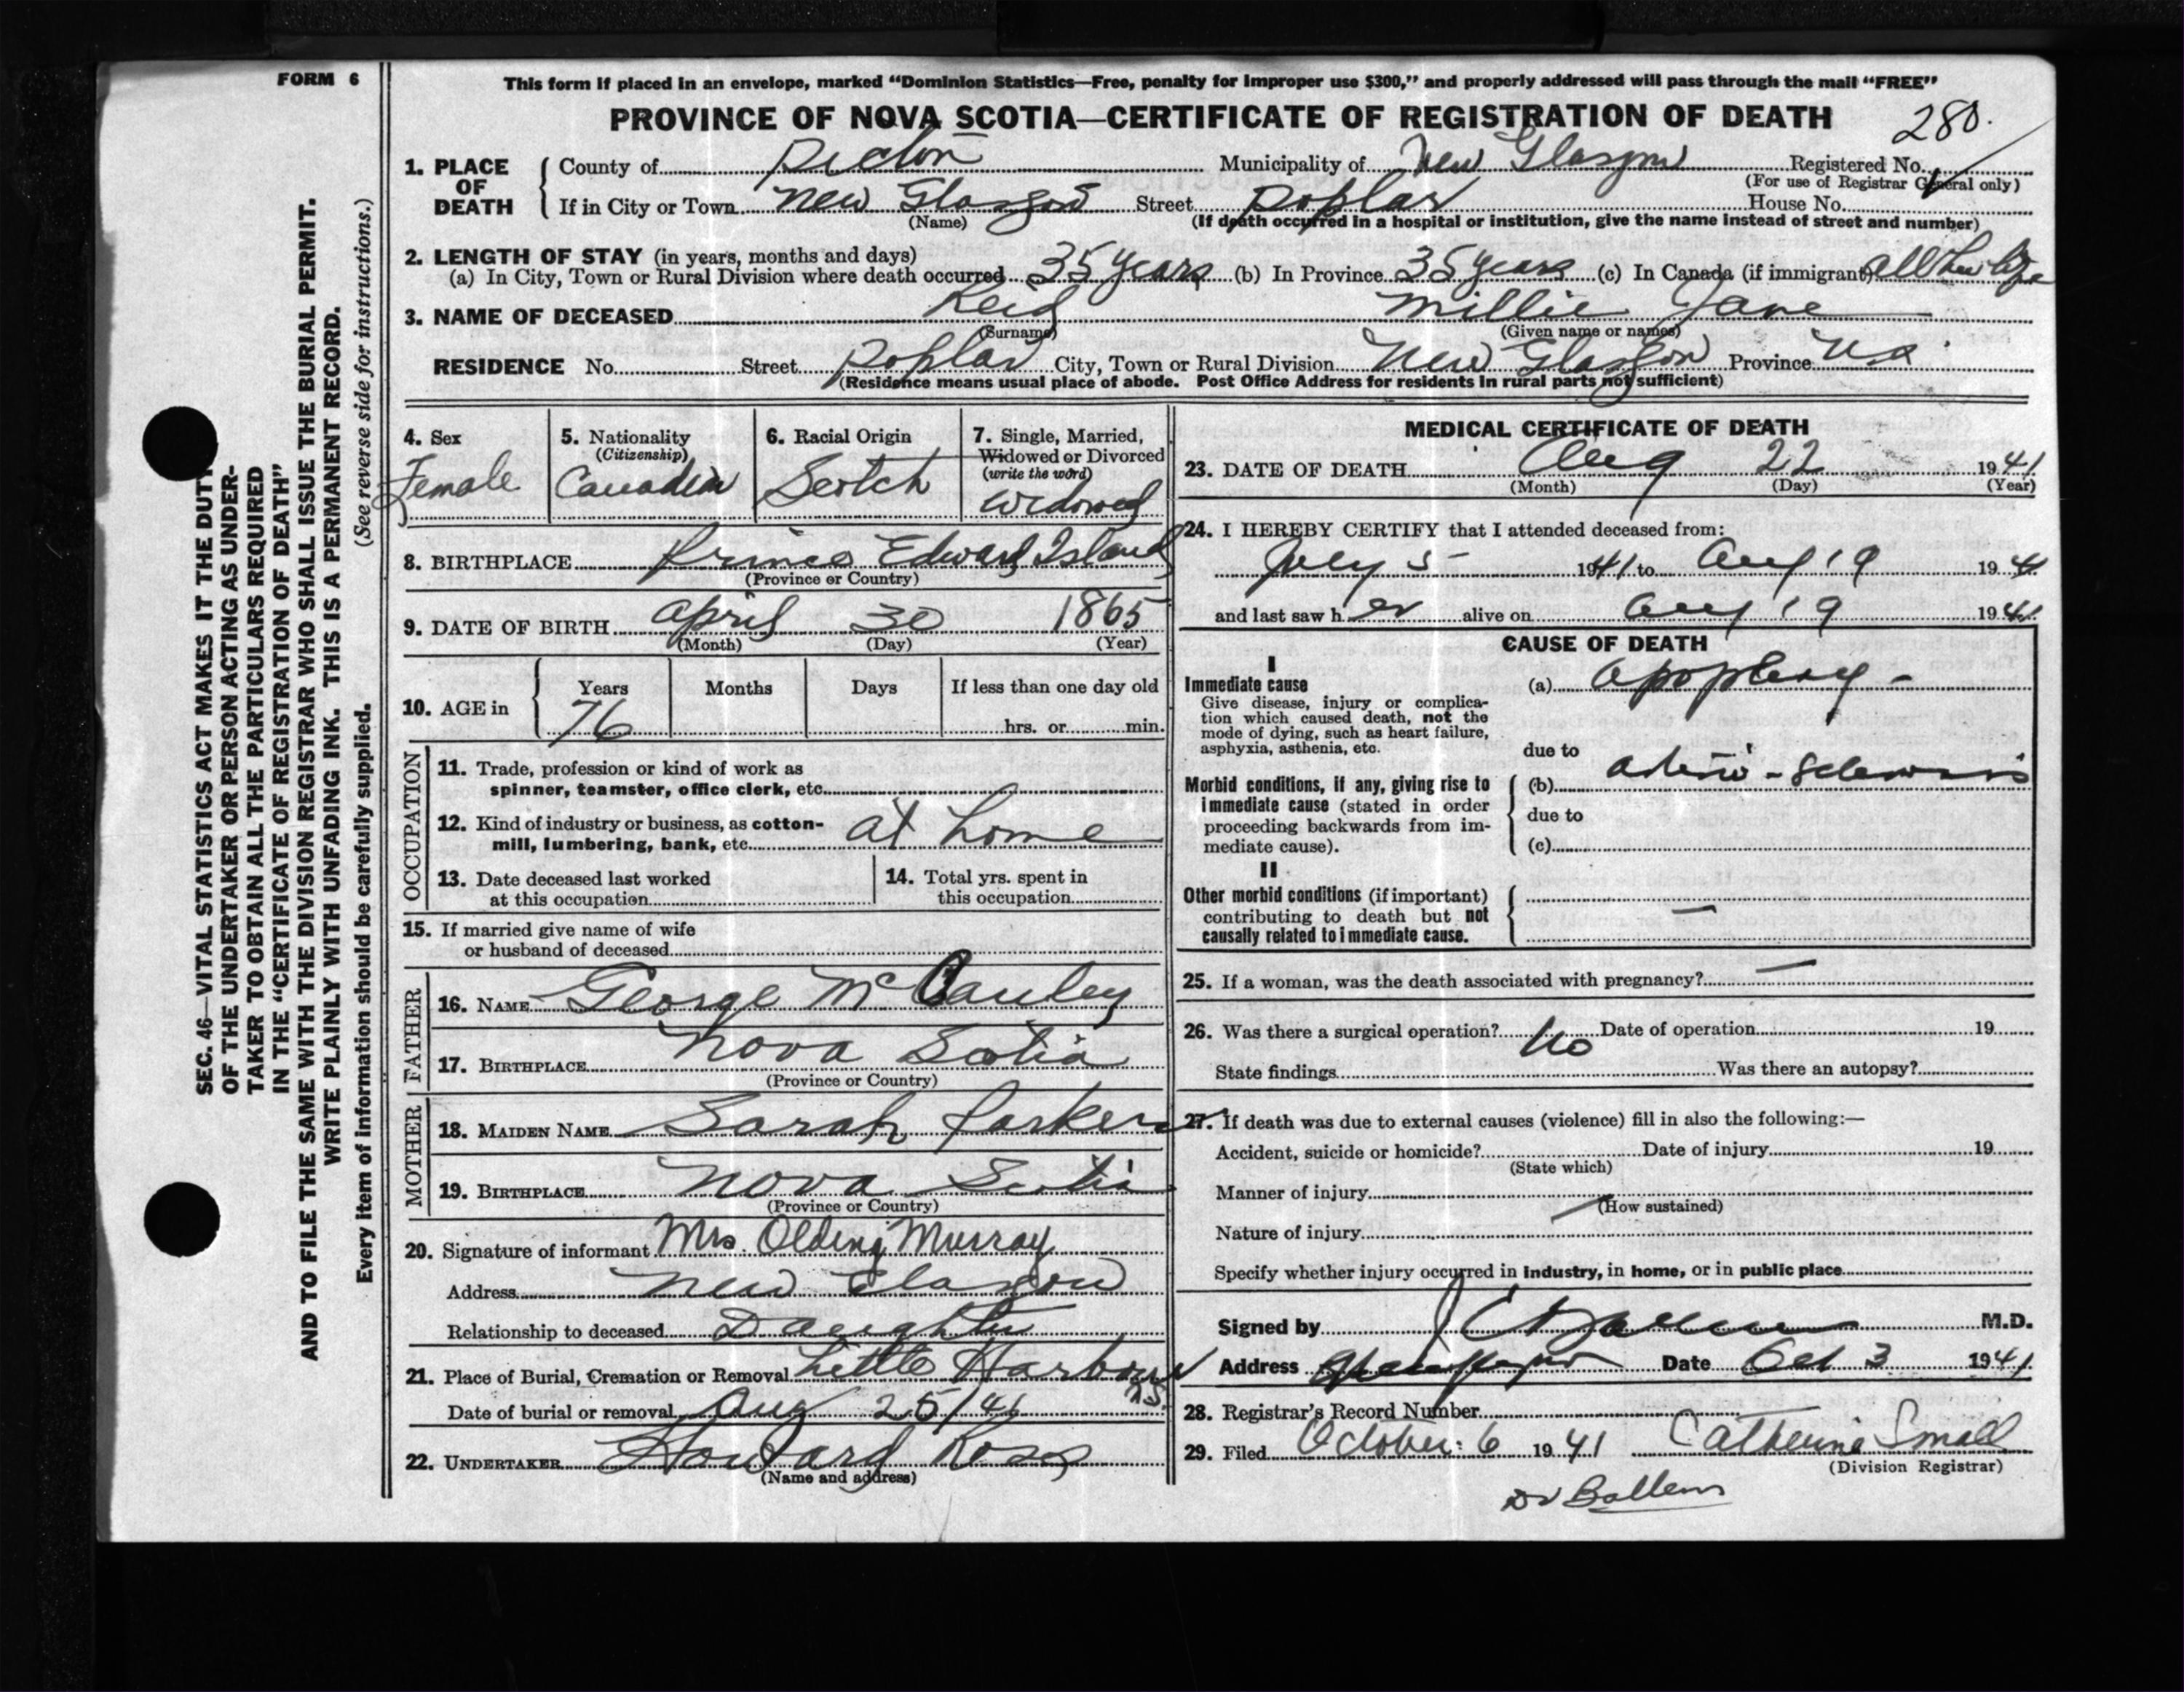 FORM 6
This form if placed in an envelope, marked "Dominion Statistics—Free, penalty for improper use $300," and properly addressed will pass through the mail "FREE"
PROVINCE OF NOVA SCOTIA—CERTIFICATE OF REGISTRATION OF DEATH
280.
1. PLACE OF DEATH
County of Pictou Municipality of New Glasgow Registered No.
(For use of Registrar General only)
If in City or Town New Glasgow Street Poplar House No.
(Name) (If death occurred in a hospital or institution, give the name instead of street and number)
2. LENGTH OF STAY (in years, months and days)
(a) In City, Town or Rural Division where death occurred 35 years (b) In Province 35 years (c) In Canada (if immigrant) all her life
3. NAME OF DECEASED Reid Millie Jane
(Surname) (Given name or names)
RESIDENCE No. Street Poplar City, Town or Rural Division New Glasgow Province N S
(Residence means usual place of abode. Post Office Address for residents in rural parts not sufficient)
4. Sex
Female
5. Nationality
(Citizenship)
Canadian
6. Racial Origin
Scotch
7. Single, Married,
Widowed or Divorced
(write the word)
Widowed
8. BIRTHPLACE Prince Edward Island
(Province or Country)
9. DATE OF BIRTH April 30 1865
(Month) (Day) (Year)
10. AGE in
Years Months Days If less than one day old
76 hrs. or min.
OCCUPATION
11. Trade, profession or kind of work as
spinner, teamster, office clerk, etc.
12. Kind of industry or business, as cotton-
mill, lumbering, bank, etc. at home
13. Date deceased last worked
at this occupation
14. Total yrs. spent in
this occupation
15. If married give name of wife
or husband of deceased
FATHER
16. NAME George McCauley
17. BIRTHPLACE Nova Scotia
(Province or Country)
MOTHER
18. MAIDEN NAME Sarah Parker
19. BIRTHPLACE Nova Scotia
(Province or Country)
20. Signature of informant Mrs. Olding Murray
Address New Glasgow
Relationship to deceased Daughter
21. Place of Burial, Cremation or Removal Little Harbour
N.S.
Date of burial or removal Aug 25/41
22. UNDERTAKER Howard Ross
(Name and address)
MEDICAL CERTIFICATE OF DEATH
23. DATE OF DEATH Aug 22 1941
(Month) (Day) (Year)
24. I HEREBY CERTIFY that I attended deceased from:
July 5 1941 to Aug 19 1941
and last saw her alive on Aug 19 1941
CAUSE OF DEATH
I
Immediate cause
Give disease, injury or complica-
tion which caused death, not the
mode of dying, such as heart failure,
asphyxia, asthenia, etc.
(a) Apoplexy -
due to
Morbid conditions, if any, giving rise to
immediate cause (stated in order
proceeding backwards from im-
mediate cause).
(b) arterio-sclerosis
due to
(c)
II
Other morbid conditions (if important)
contributing to death but not
causally related to immediate cause.
—
25. If a woman, was the death associated with pregnancy? —
26. Was there a surgical operation? No Date of operation 19
State findings Was there an autopsy?
27. If death was due to external causes (violence) fill in also the following:—
Accident, suicide or homicide? Date of injury 19
(State which)
Manner of injury
(How sustained)
Nature of injury
Specify whether injury occurred in industry, in home, or in public place
Signed by J C Ballem M.D.
Address Date Oct 3 1941
28. Registrar's Record Number
29. Filed October 6 1941 Catherine Small
(Division Registrar)
Dr Ballem
SEC. 46—VITAL STATISTICS ACT MAKES IT THE DUTY
OF THE UNDERTAKER OR PERSON ACTING AS UNDER-
TAKER TO OBTAIN ALL THE PARTICULARS REQUIRED
IN THE "CERTIFICATE OF REGISTRATION OF DEATH"
AND TO FILE THE SAME WITH THE DIVISION REGISTRAR WHO SHALL ISSUE THE BURIAL PERMIT.
WRITE PLAINLY WITH UNFADING INK. THIS IS A PERMANENT RECORD.
Every item of information should be carefully supplied. (See reverse side for instructions.)